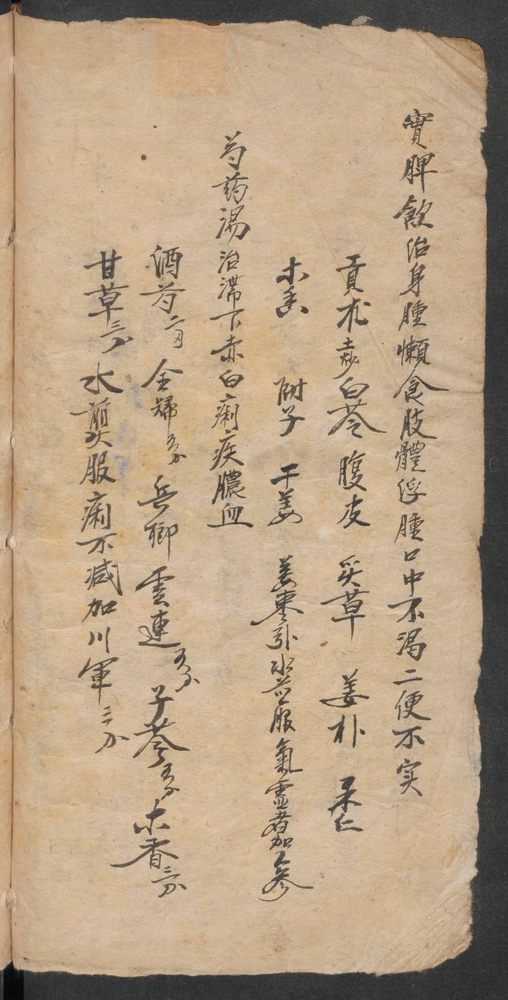 實脾飲治身腫懶食肢體浮腫口中不渴二便不实
貢朮 赤白苓 腹皮 炙草 姜朴 果仁
木香 附子 干姜 姜枣引水煎服氣虛者加人參
芍药湯治滞下赤白痢疾膿血
酒芍 全歸 兵郎 雲連 子苓 木香三分
甘草三分 水煎服痢不减加川軍三分